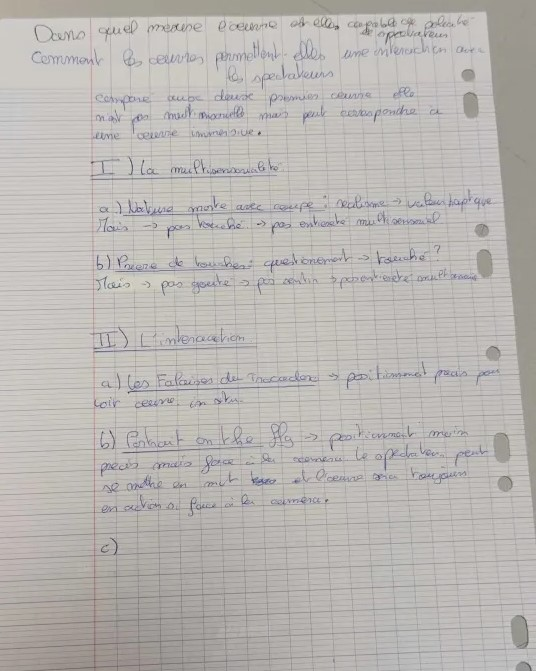 Dans quel mesure l'oeuvre est elle capable de
de spectateur
Comment les oeuvres permettent elles une interaction avec
les spectateurs
comparé aux deux premiers oeuvre elle
n'est pas multisensorielle mais peut correspondre à
une oeuvre immersive.
I) La multisensorialité
a) Nature morte avec coupe : réalisme → valeur haptique
Mais → pas touché → pas entierete multisensoriel
b) Prière de toucher : questionement → touché ?
Mais → pas gouté → pas sentir → pas entiereté
II) L'interaction
a) Les Falaises du Trocadero → positionment precis pour
voir oeuvre in situ.
b) Portrait on the fly → positionment moin
precis mais face à la camera le spectateur peut
se mettre en mvt et l'oeuvre sera toujours
en action si face à la caméra.
c)